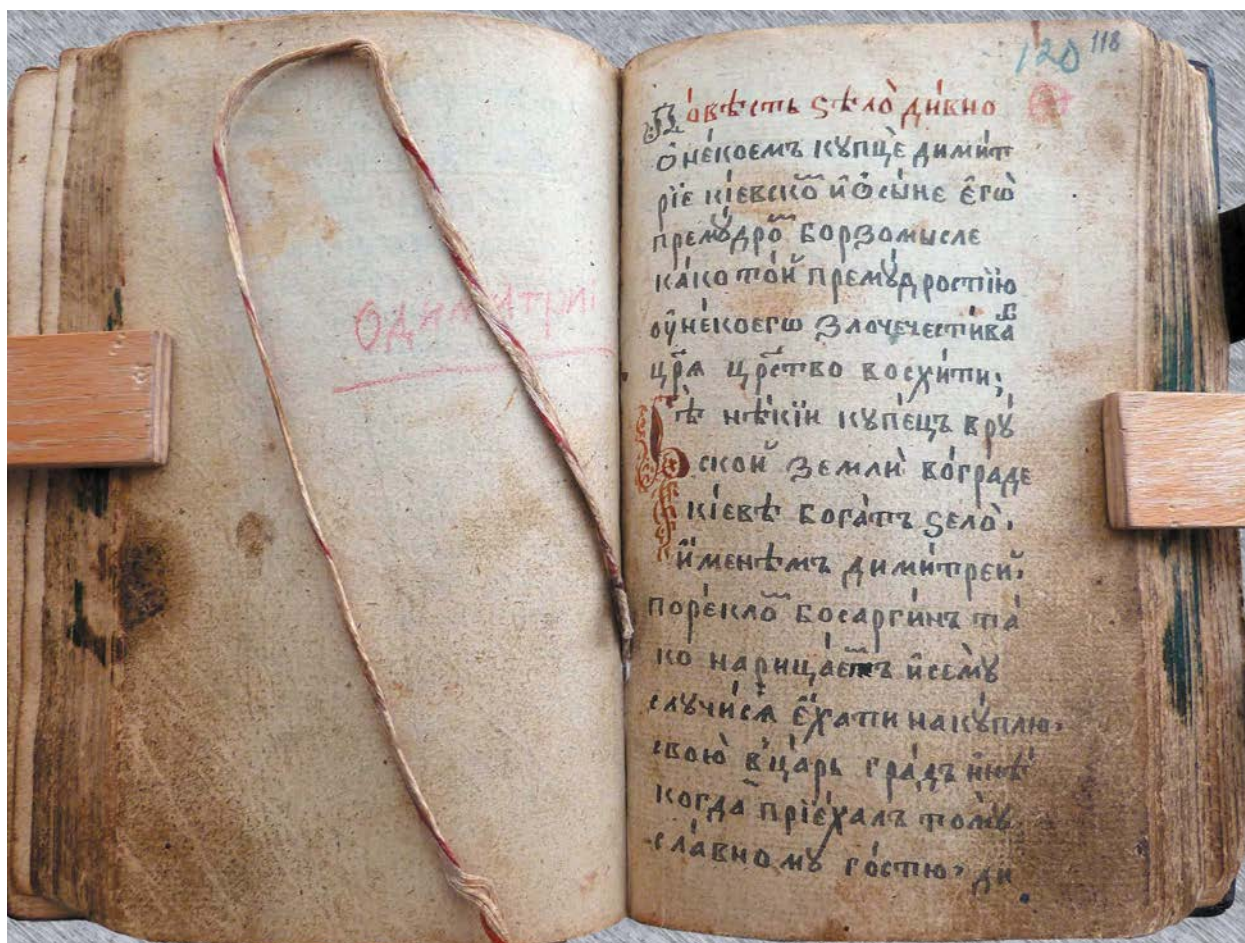 О Димитрии
120 118
Повѣсть ѕѣло̀ ди́вно
ѡ҆ не́коемъ кꙋпцѐ дими́т
рїе кі́евско^м и҆ ѡ҆ сы́не є҆гѡ̀
премꙋ́дро^м борзомысле
ка́ко то́й премꙋ́дростїю
оу҆ не́коегѡ злочече́сти́ва^г
цр҃ѧ цр҃ство восхи́ти;
Бѣ̀ нѣ́кїи кꙋпе́цъ в рꙋ́
ской землѝ во́ граде
кі́евѣ бога́тъ ѕело̀,
и҆́менѣмъ дими́трей,
поре́кло^м босарги́нъ та́
ко нарица́етъ и҆ семꙋ̀
слꙋчи́сѧ е҆́хати на кꙋ́плю,
свою̀ в̾ ца́рь гра́дъ и҆ нѣ́
когда̀ прїе́халъ томꙋ̀
сла́вномꙋ го́стю, ди